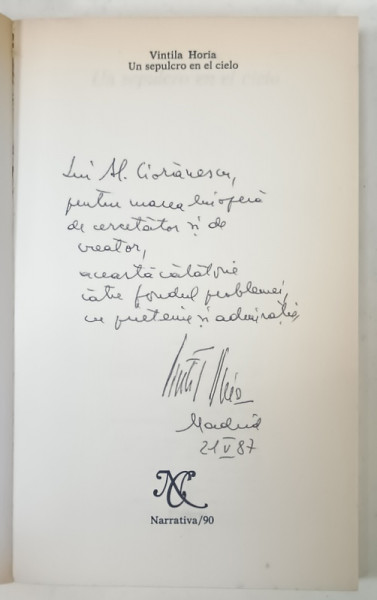 Vintila Horia
Un sepulcro en el cielo
Lui Al. Ciorănescu,
pentru marea lui operă
de cercetător și de
creator,
această călătorie
către fondul problemei,
cu prietenie și admirație
Vintilă Horia
Madrid
21 V 87
NC
Narrativa/90